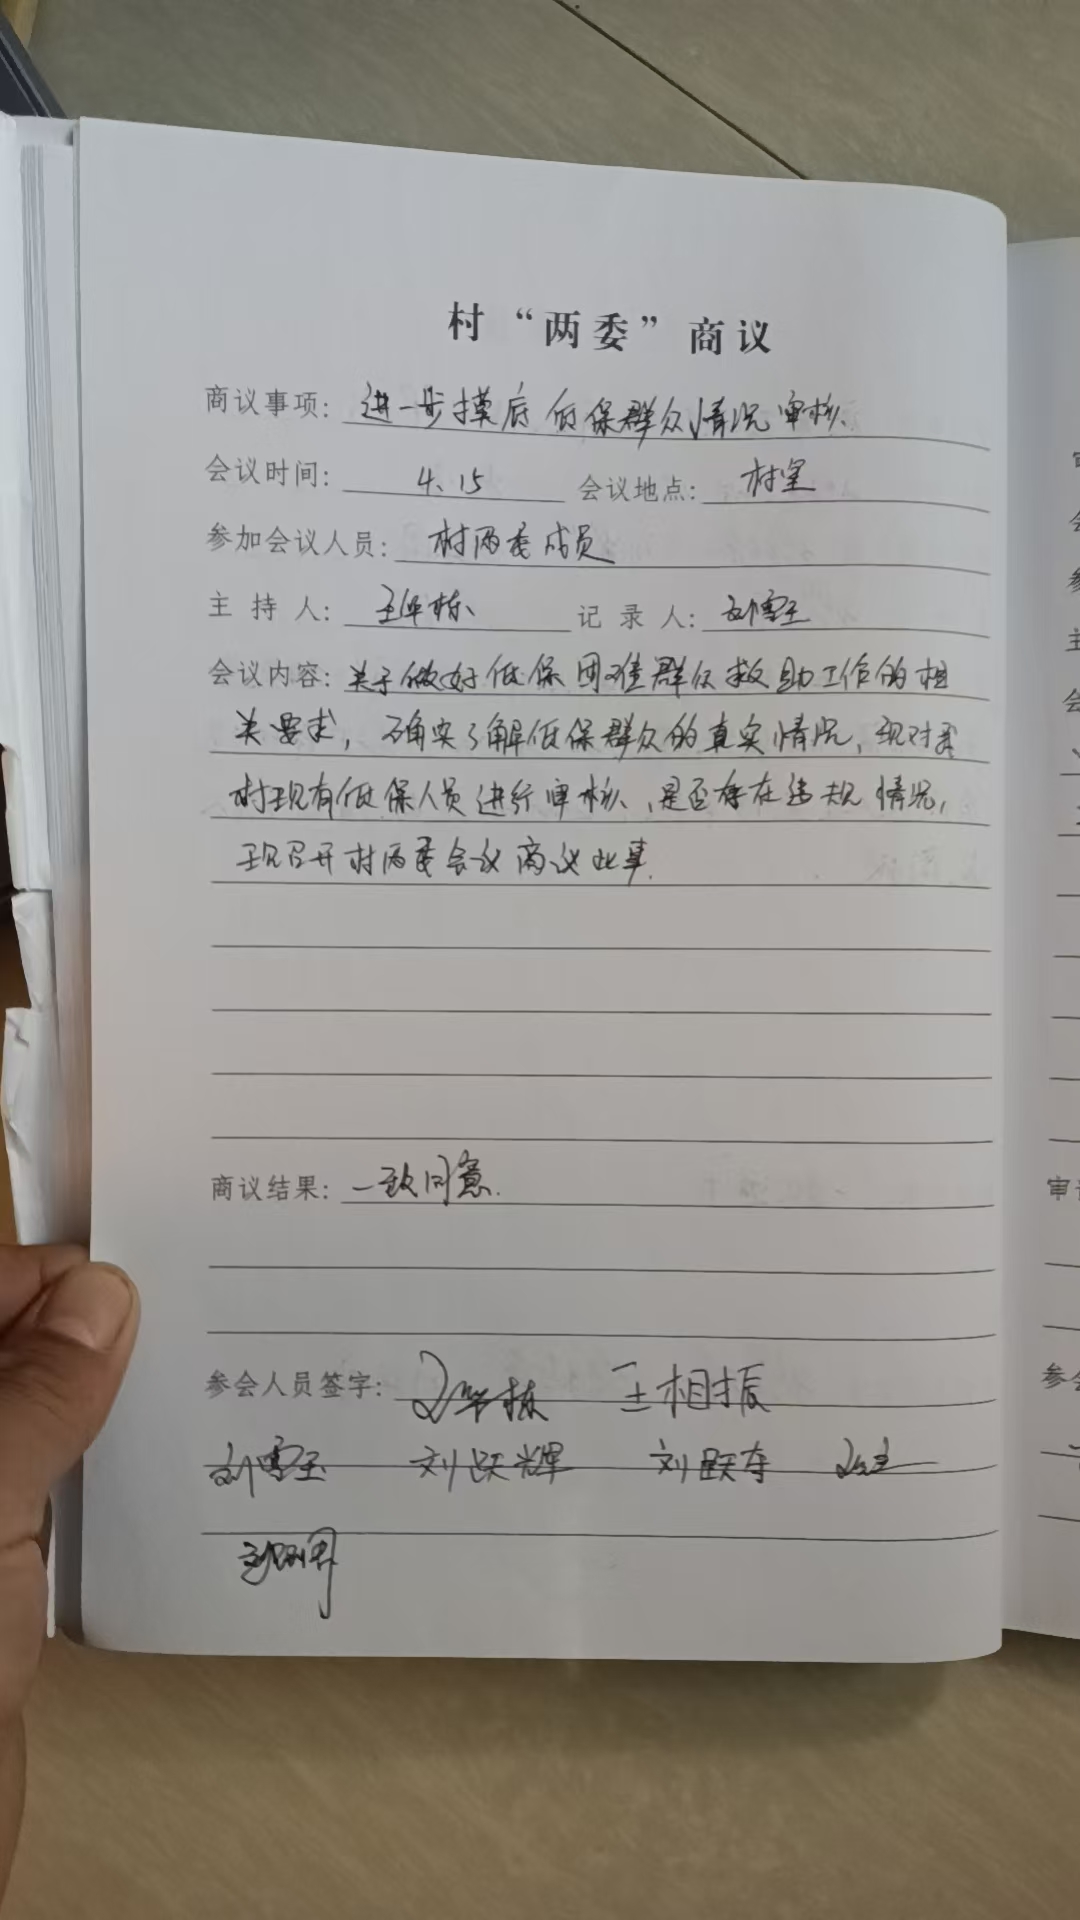 村“两委”商议
商议事项：进一步摸底低保群众情况审核、
会议时间：4、15 会议地点：村室
参加会议人员：村两委成员
主持人：王华栋、 记录人：刘雪玉
会议内容：关于做好低保困难群众救助工作的相
关要求，确实了解低保群众的真实情况，现对我
村现有低保人员进行审核、是否存在违规情况，
现召开村两委会议商议此事.
商议结果：一致同意.
参会人员签字：王华栋 王相振
刘雪玉 刘跃辉 刘跃存
审
会
参
主
会
审议
参会